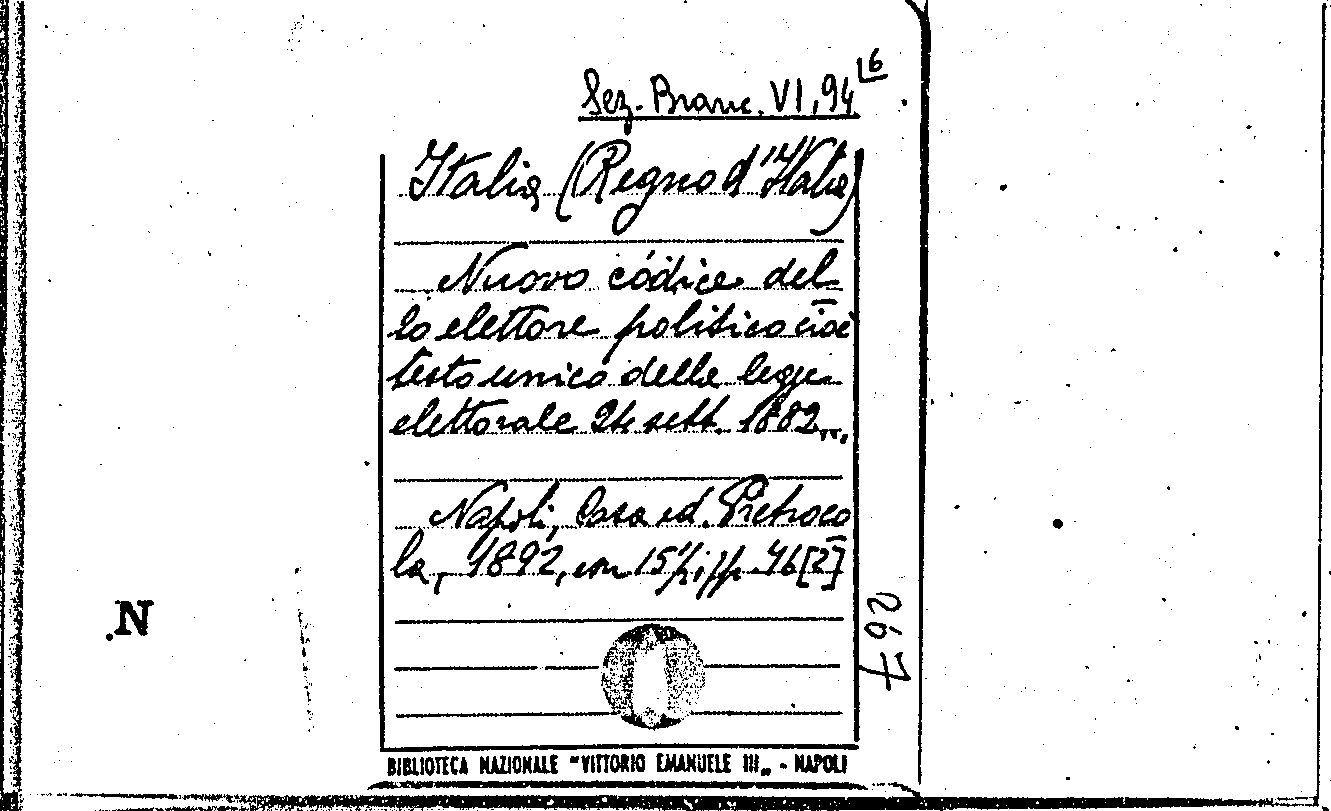 Sez. Branc. VI, 94 16
Italia (Regno d'Italia)
Nuovo codice del
lo elettore politico cioè
testo unico delle legge
elettorale 24 sett. 1882...
Napoli, Casa ed. Pietroco
la, 1892, cm 15½, pp. 46 [2]
267
N
BIBLIOTECA NAZIONALE "VITTORIO EMANUELE III„ - NAPOLI